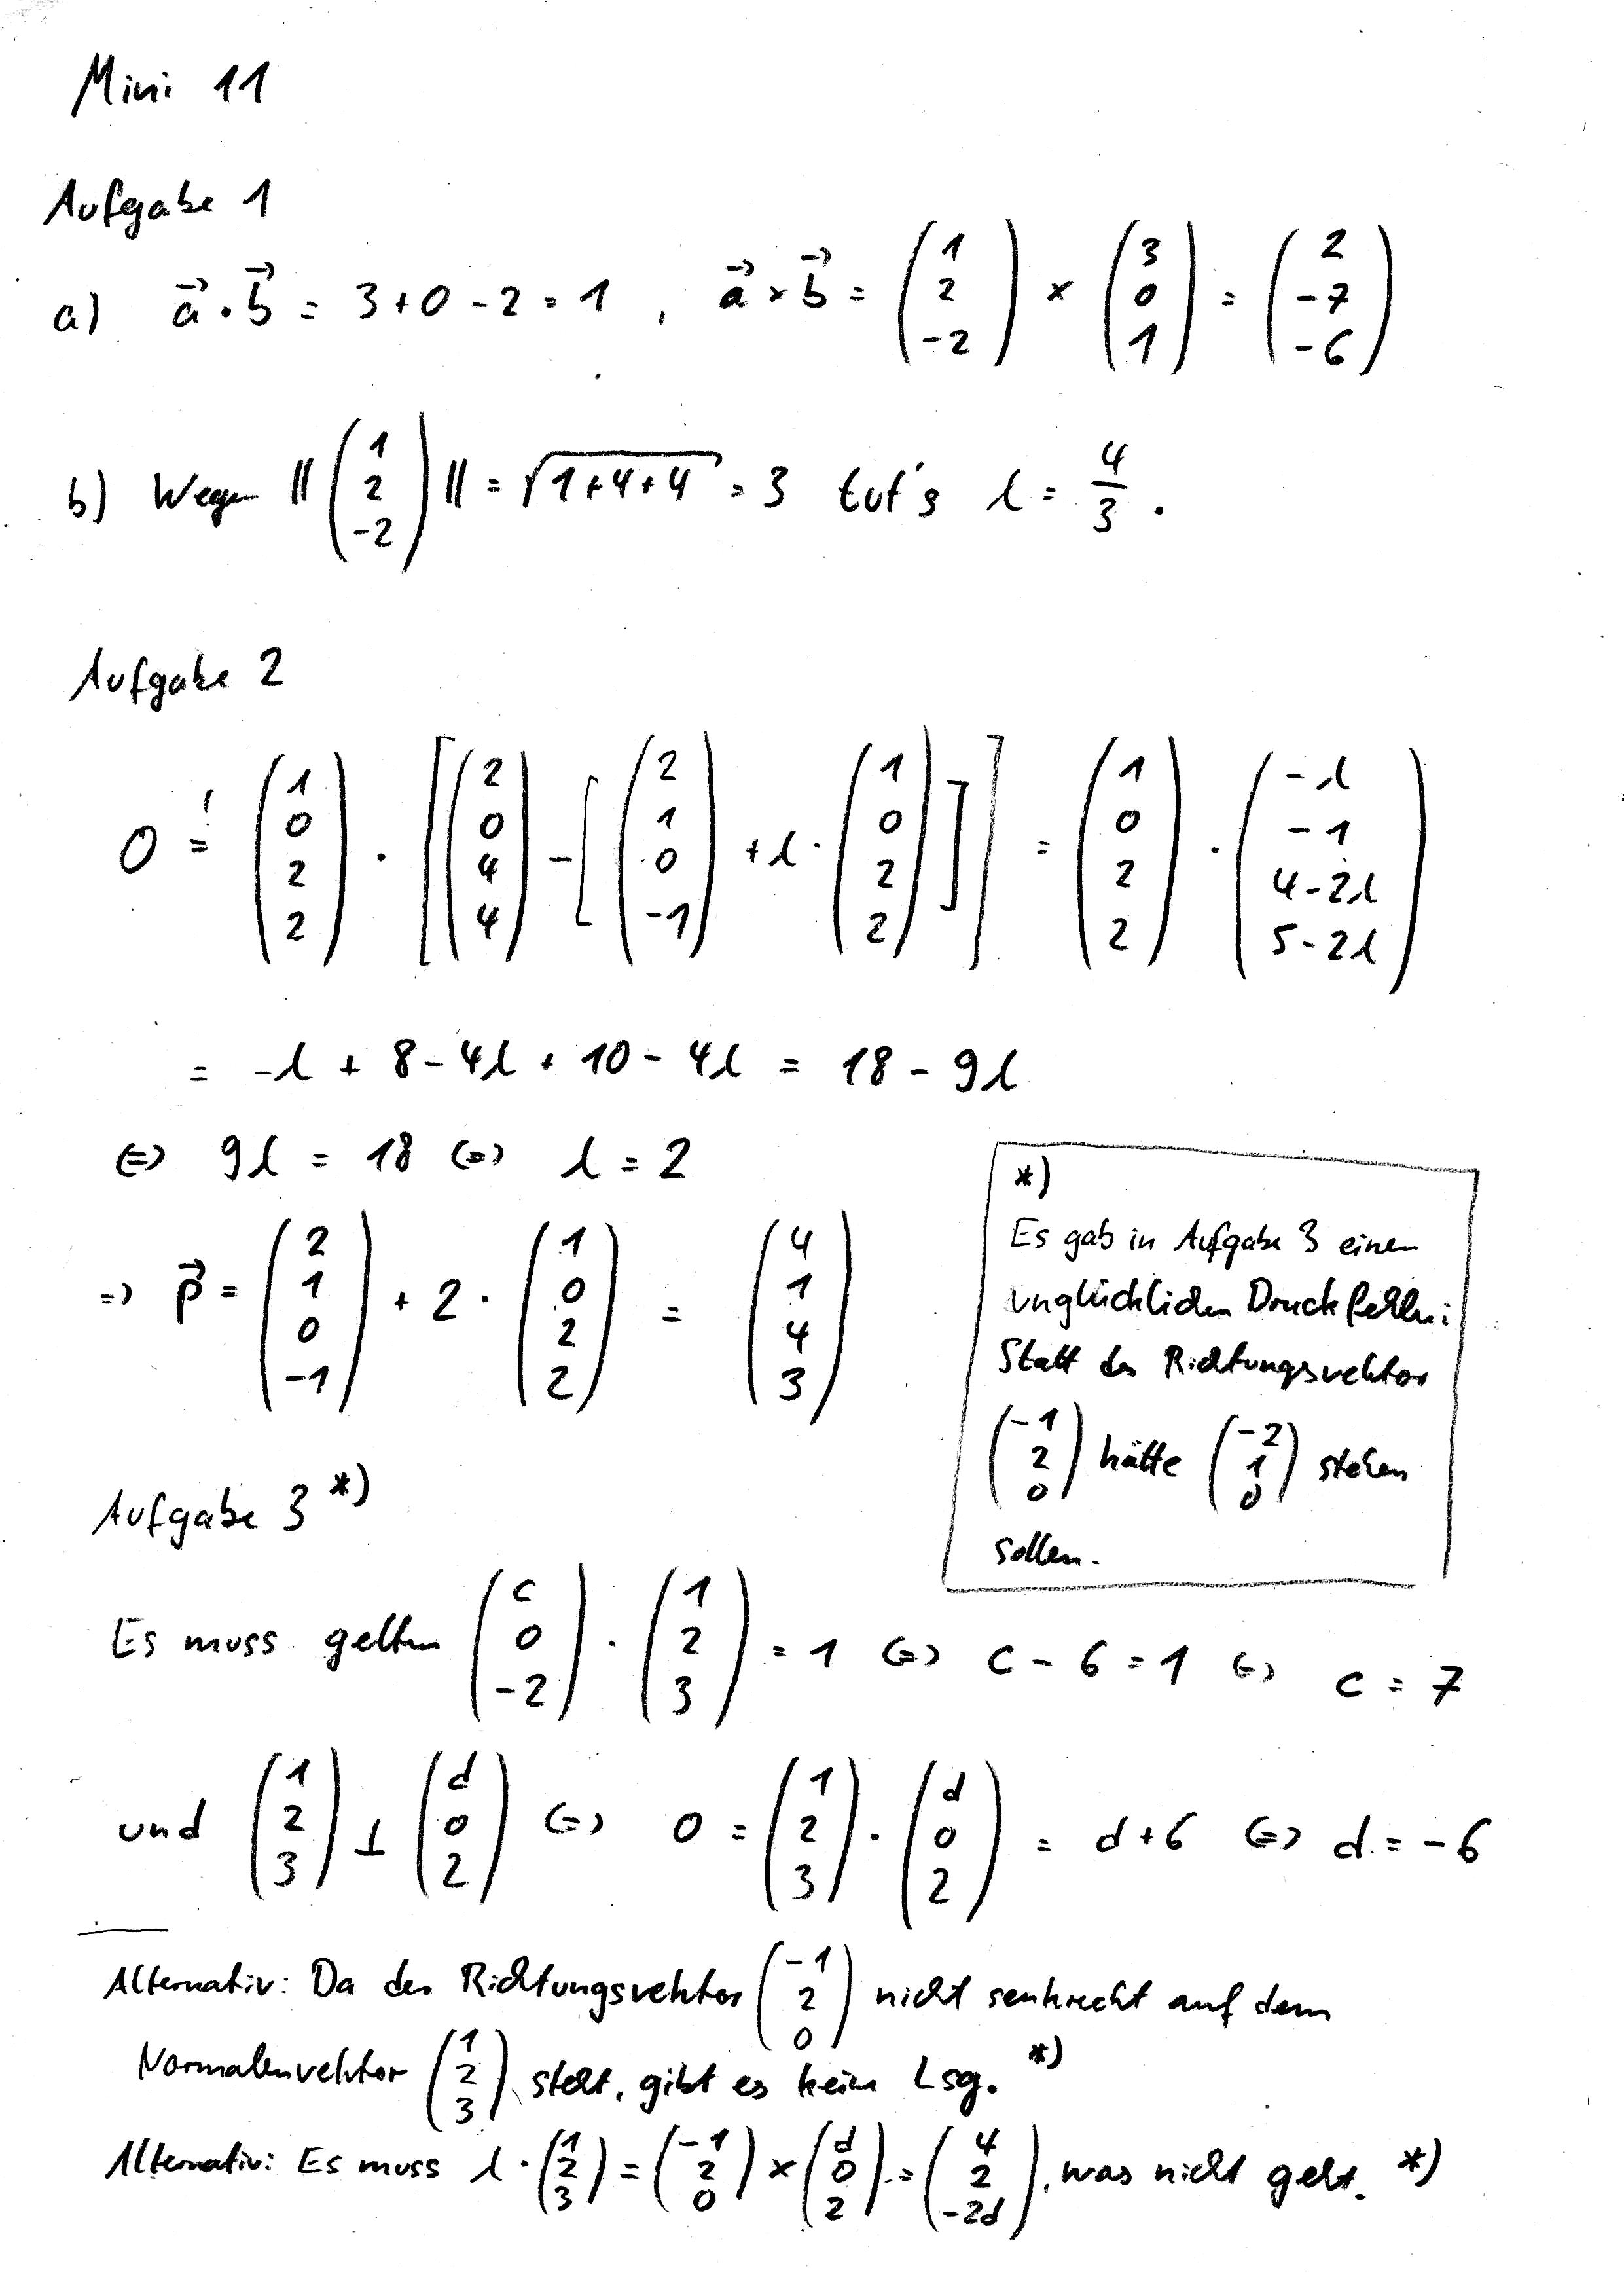 Mini 11
Aufgabe 1
a) a⃗ · b⃗ = 3 + 0 - 2 = 1 , a⃗ × b⃗ = (1 2 -2) × (3 0 1) = (2 -7 -6)
b) Wegen ‖(1 2 -2)‖ = √(1+4+4) = 3 tut's λ = 4/3 .
Aufgabe 2
0 =! (1 0 2 2) · [(2 0 4 4) - [(2 1 0 -1) + λ · (1 0 2 2)]] = (1 0 2 2) · (-λ -1 4-2λ 5-2λ)
= -λ + 8 - 4λ + 10 - 4λ = 18 - 9λ
⇔ 9λ = 18 ⇔ λ = 2
⇒ p⃗ = (2 1 0 -1) + 2 · (1 0 2 2) = (4 1 4 3)
*)
Es gab in Aufgabe 3 einen
unglücklichen Druckfehler:
Statt des Richtungsvektor
(-1 2 0) hätte (-2 1 0) stehen
sollen.
Aufgabe 3 *)
Es muss gelten (c 0 -2) · (1 2 3) = 1 ⇔ c - 6 = 1 ⇔ c = 7
und (1 2 3) ⊥ (d 0 2) ⇔ 0 = (1 2 3) · (d 0 2) = d + 6 ⇔ d = -6
Alternativ: Da der Richtungsvektor (-1 2 0) nicht senkrecht auf dem
Normalenvektor (1 2 3) steht, gibt es keine Lsg. *)
Alternativ: Es muss λ · (1 2 3) = (-1 2 0) × (d 0 2) = (4 2 -2d), was nicht geht. *)